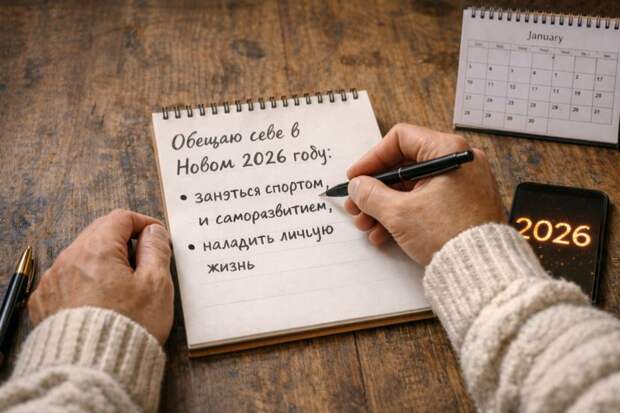 Обещаю себе в
Новом 2026 году:
• заняться спортом,
и саморазвитием,
• наладить личную
жизнь
January
2026